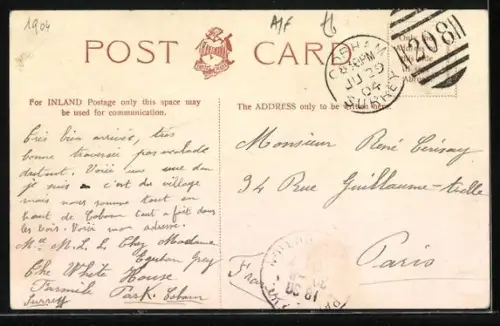 1904
A/F
POST CARD
COBHAM
8.30PM
JU 29
04
SURREY
A2081
For INLAND Postage only this space may
be used for communication.
The ADDRESS only to be written here.
Très bien arrivée, très
bonne traversée pas malade
du tout. Voici une vue d'en
je suis c'est du village
mais nous sommes tout en
haut de Cobham tout a fait dans
les bois. Voici mon adresse.
Chez Madame
Grey
The White House
Park. Cobham
Surrey
Monsieur René
94 Rue Guillaume-
Paris
France